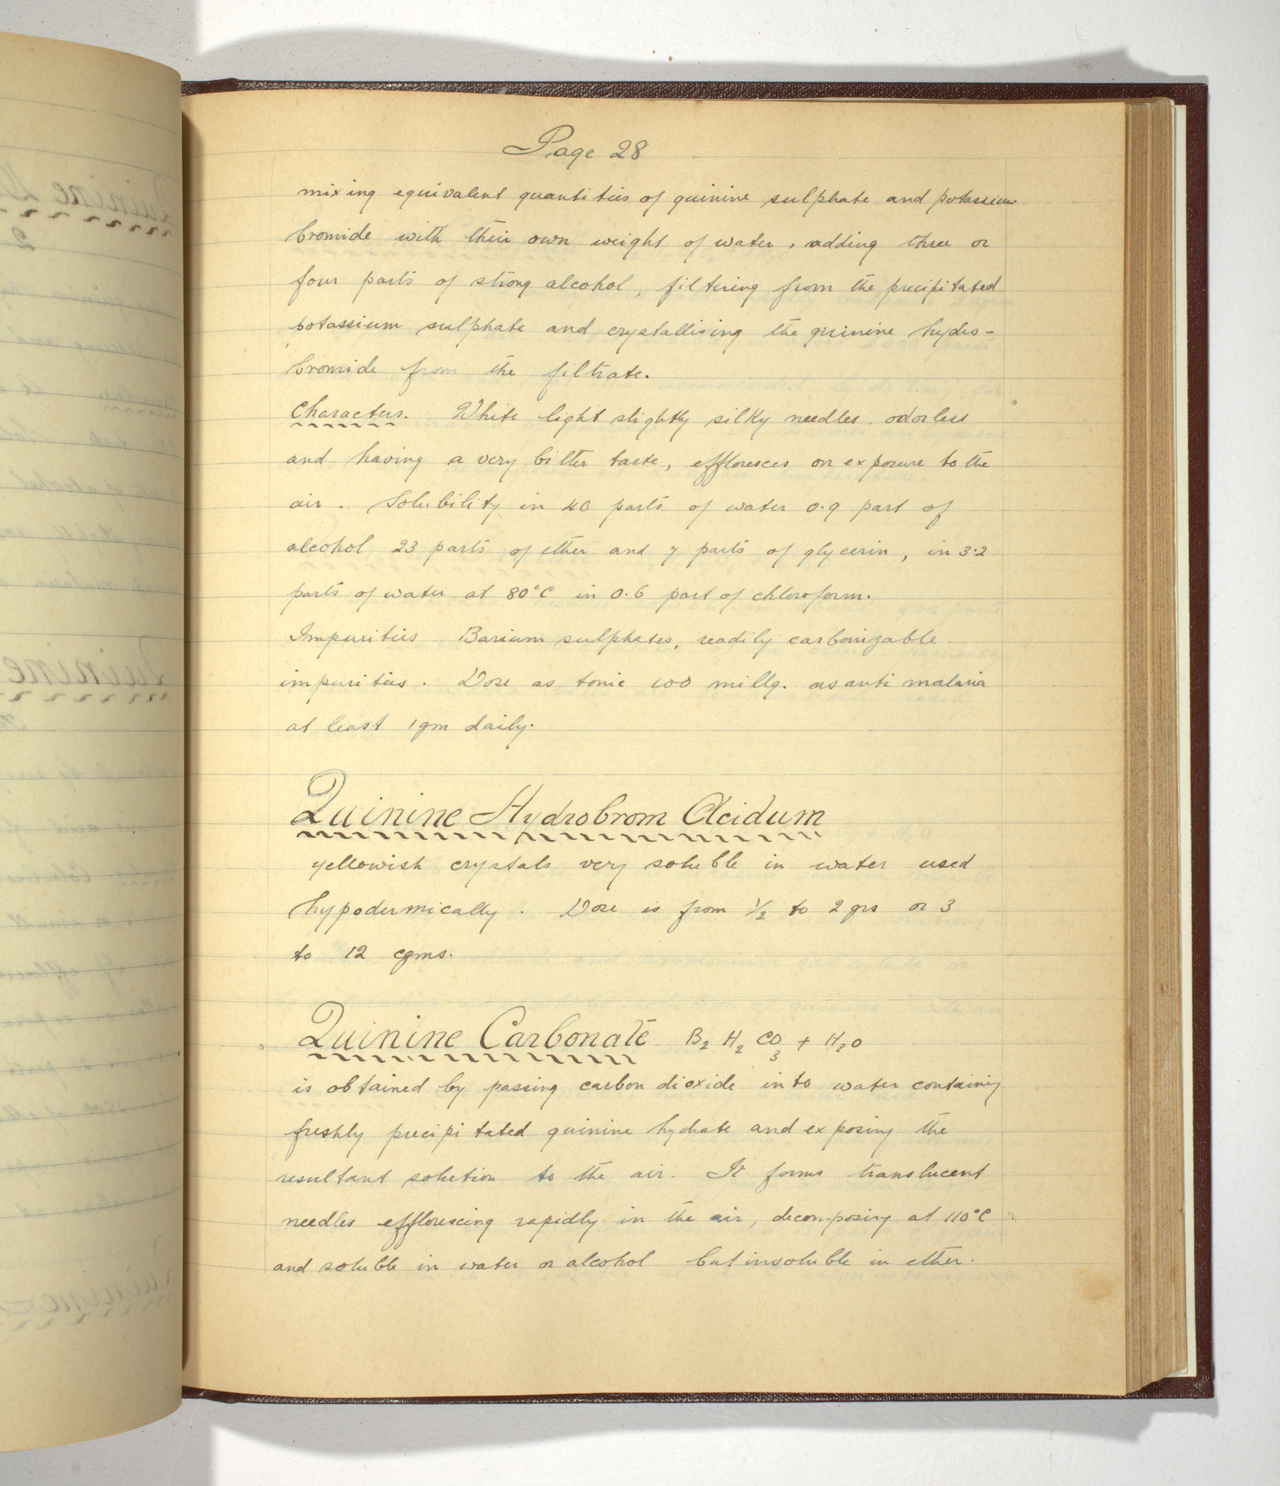 Page 28
mixing equivalent quantities of quinine sulphate and potassium
bromide with their own weight of water, adding three or
four parts of strong alcohol, filtering from the precipitated
potassium sulphate and crystallising the quinine hydro-
bromide from the filtrate.
Characters. White light slightly silky needles. odorless
and having a very bitter taste, effloresces on exposure to the
air. Solubility in 40 parts of water 0.9 part of
alcohol 23 parts of ether and 7 parts of glycerin, in 3.2
parts of water at 80°C in 0.6 part of chloroform.
Impurities Barium sulphates, readily carbonizable
impurities. Dose as tonic 100 millg. as anti malaria
at least 1gm daily.
Quinine Hydrobrom Acidum
yellowish crystals very soluble in water used
hypodermically. Dose is from ½ to 2 grs or 3
to 12 cgms.
Quinine Carbonate B2 H2 CO3 + H2O
is obtained by passing carbon dioxide into water containing
freshly precipitated quinine hydrate and exposing the
resultant solution to the air. It forms translucent
needles efflorescing rapidly in the air, decomposing at 110°C
and soluble in water or alcohol but insoluble in ether.